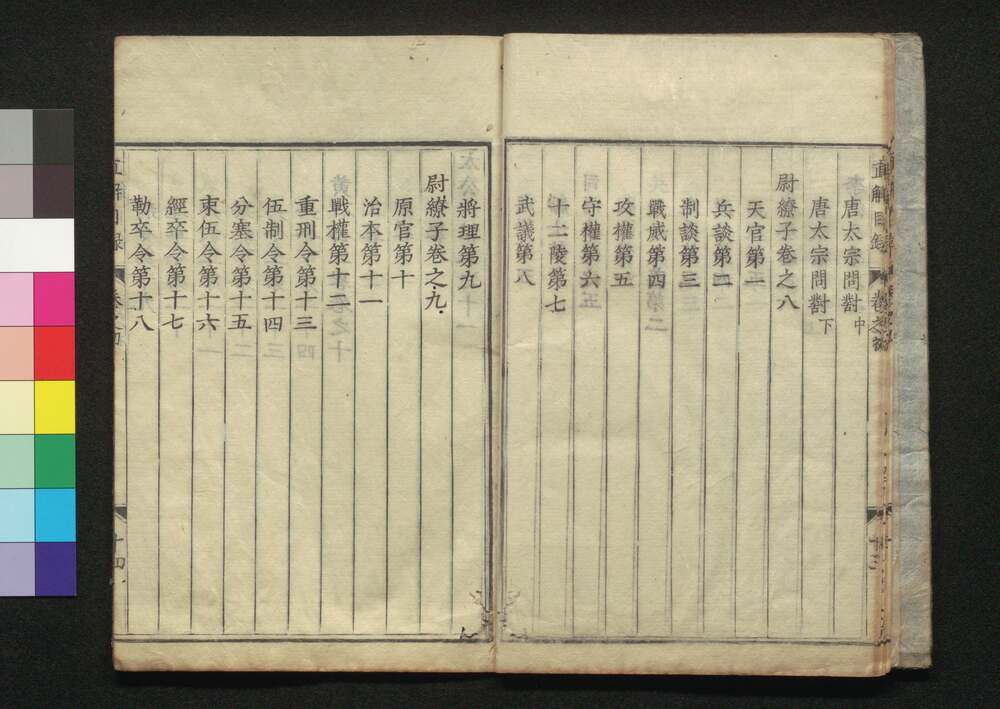 唐太宗問對中
唐太宗問對下
尉繚子卷之八
天官第一
兵談第二
制談第三
戰威第四
攻權第五
守權第六
十二陵第七
武議第八
將理第九
尉繚子卷之九
原官第十
治本第十一
戰權第十二
重刑令第十三
伍制令第十四
分塞令第十五
束伍令第十六
經卒令第十七
勒卒令第十八